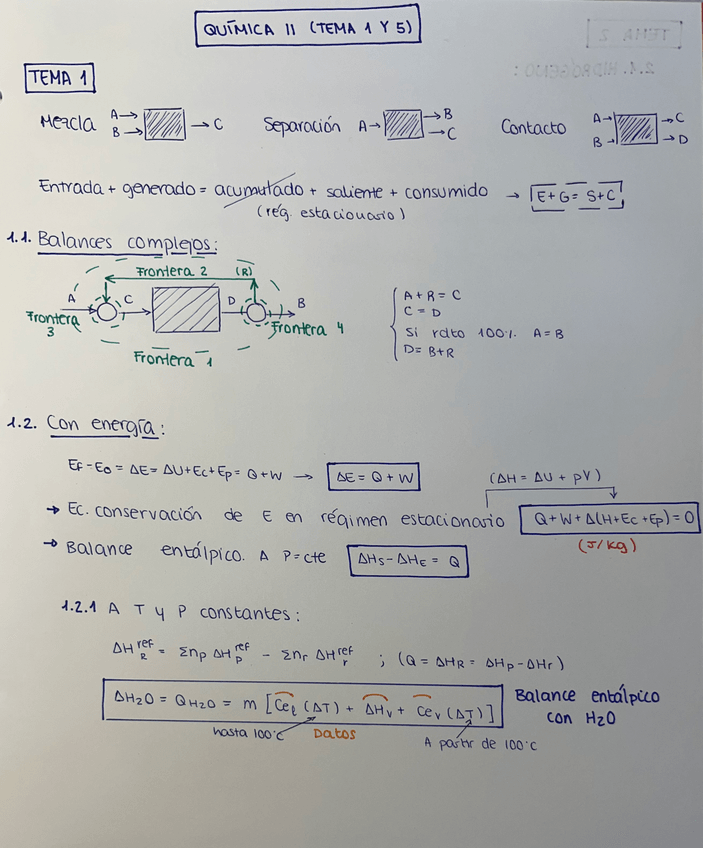 QUÍMICA II (TEMA 1 Y 5)
TEMA 2
2.1. HIDRÓGENO:
TEMA 1
Mezcla A→ B→ → C Separación A→ →B →C Contacto A→ B→ →C →D
Entrada + generado = acumulado + saliente + consumido → E+G= S+C
(rég. estacionario)
1.1. Balances complejos:
Frontera 2 (R)
A C D B
Frontera 3
Frontera 4
Frontera 1
A+R = C
C = D
Si rdto 100%. A=B
D= B+R
1.2. Con energía:
Ef-E0 = ΔE= ΔU+Ec+Ep= Q+W → ΔE = Q+W
(ΔH = ΔU + pV)
→ Ec. conservación de E en régimen estacionario Q+W+Δ(H+Ec+Ep)=0
(J/kg)
→ Balance entálpico. A P=cte ΔHS-ΔHE = Q
1.2.1 A T y P constantes:
ΔH_R^ref = Σnp ΔH_p^ref - Σnr ΔH_r^ref ; (Q = ΔHR = ΔHp-ΔHr)
ΔH2O = QH2O = m [Cel (ΔT) + ΔHv + Cev (ΔT)]
Balance entálpico
con H2O
hasta 100°C DATOS A partir de 100°C